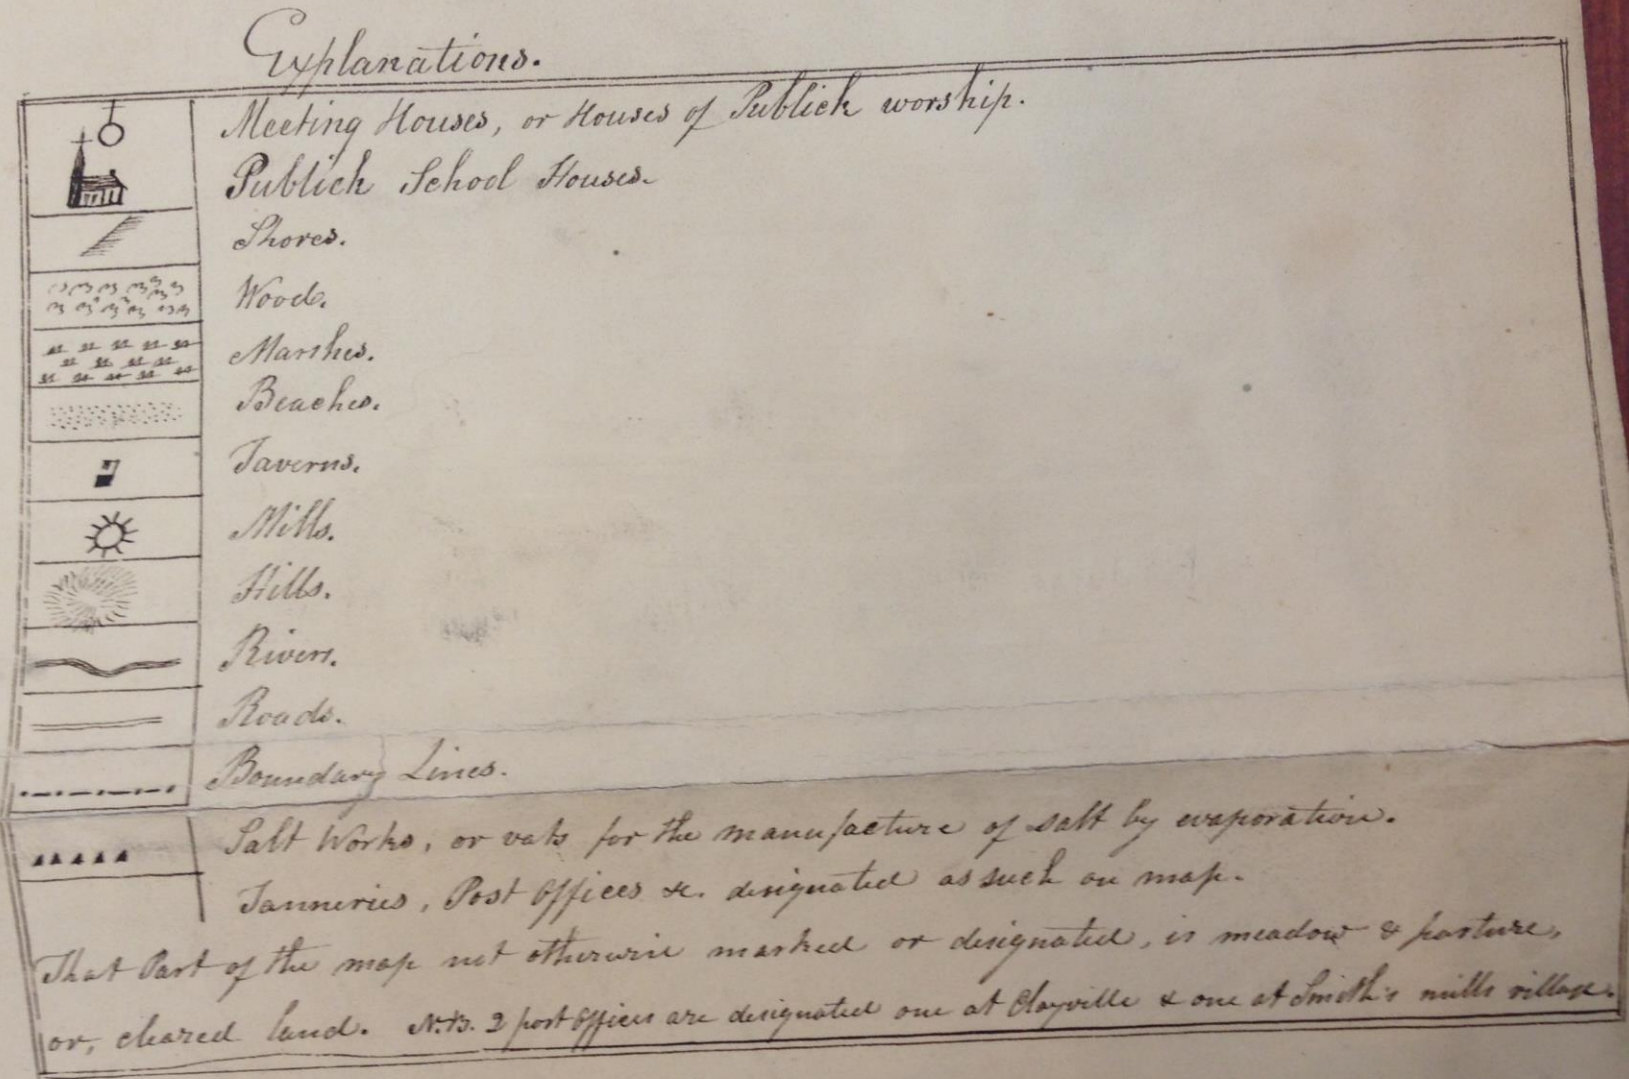 Explanations.
Meeting Houses, or Houses of Publick worship.
Publick School Houses.
Shores.
Wood.
Marshes.
Beaches.
Taverns.
Mills.
Hills.
Rivers.
Roads.
Boundary Lines.
Salt Works, or vats for the manufacture of salt by evaporation.
Tanneries, Post Offices &c. designated as such on map.
That Part of the map not otherwise marked or designated, is meadow & pasture,
or, cleared land. N.B. 2 post offices are designated one at Clayville & one at Smith's mills village.